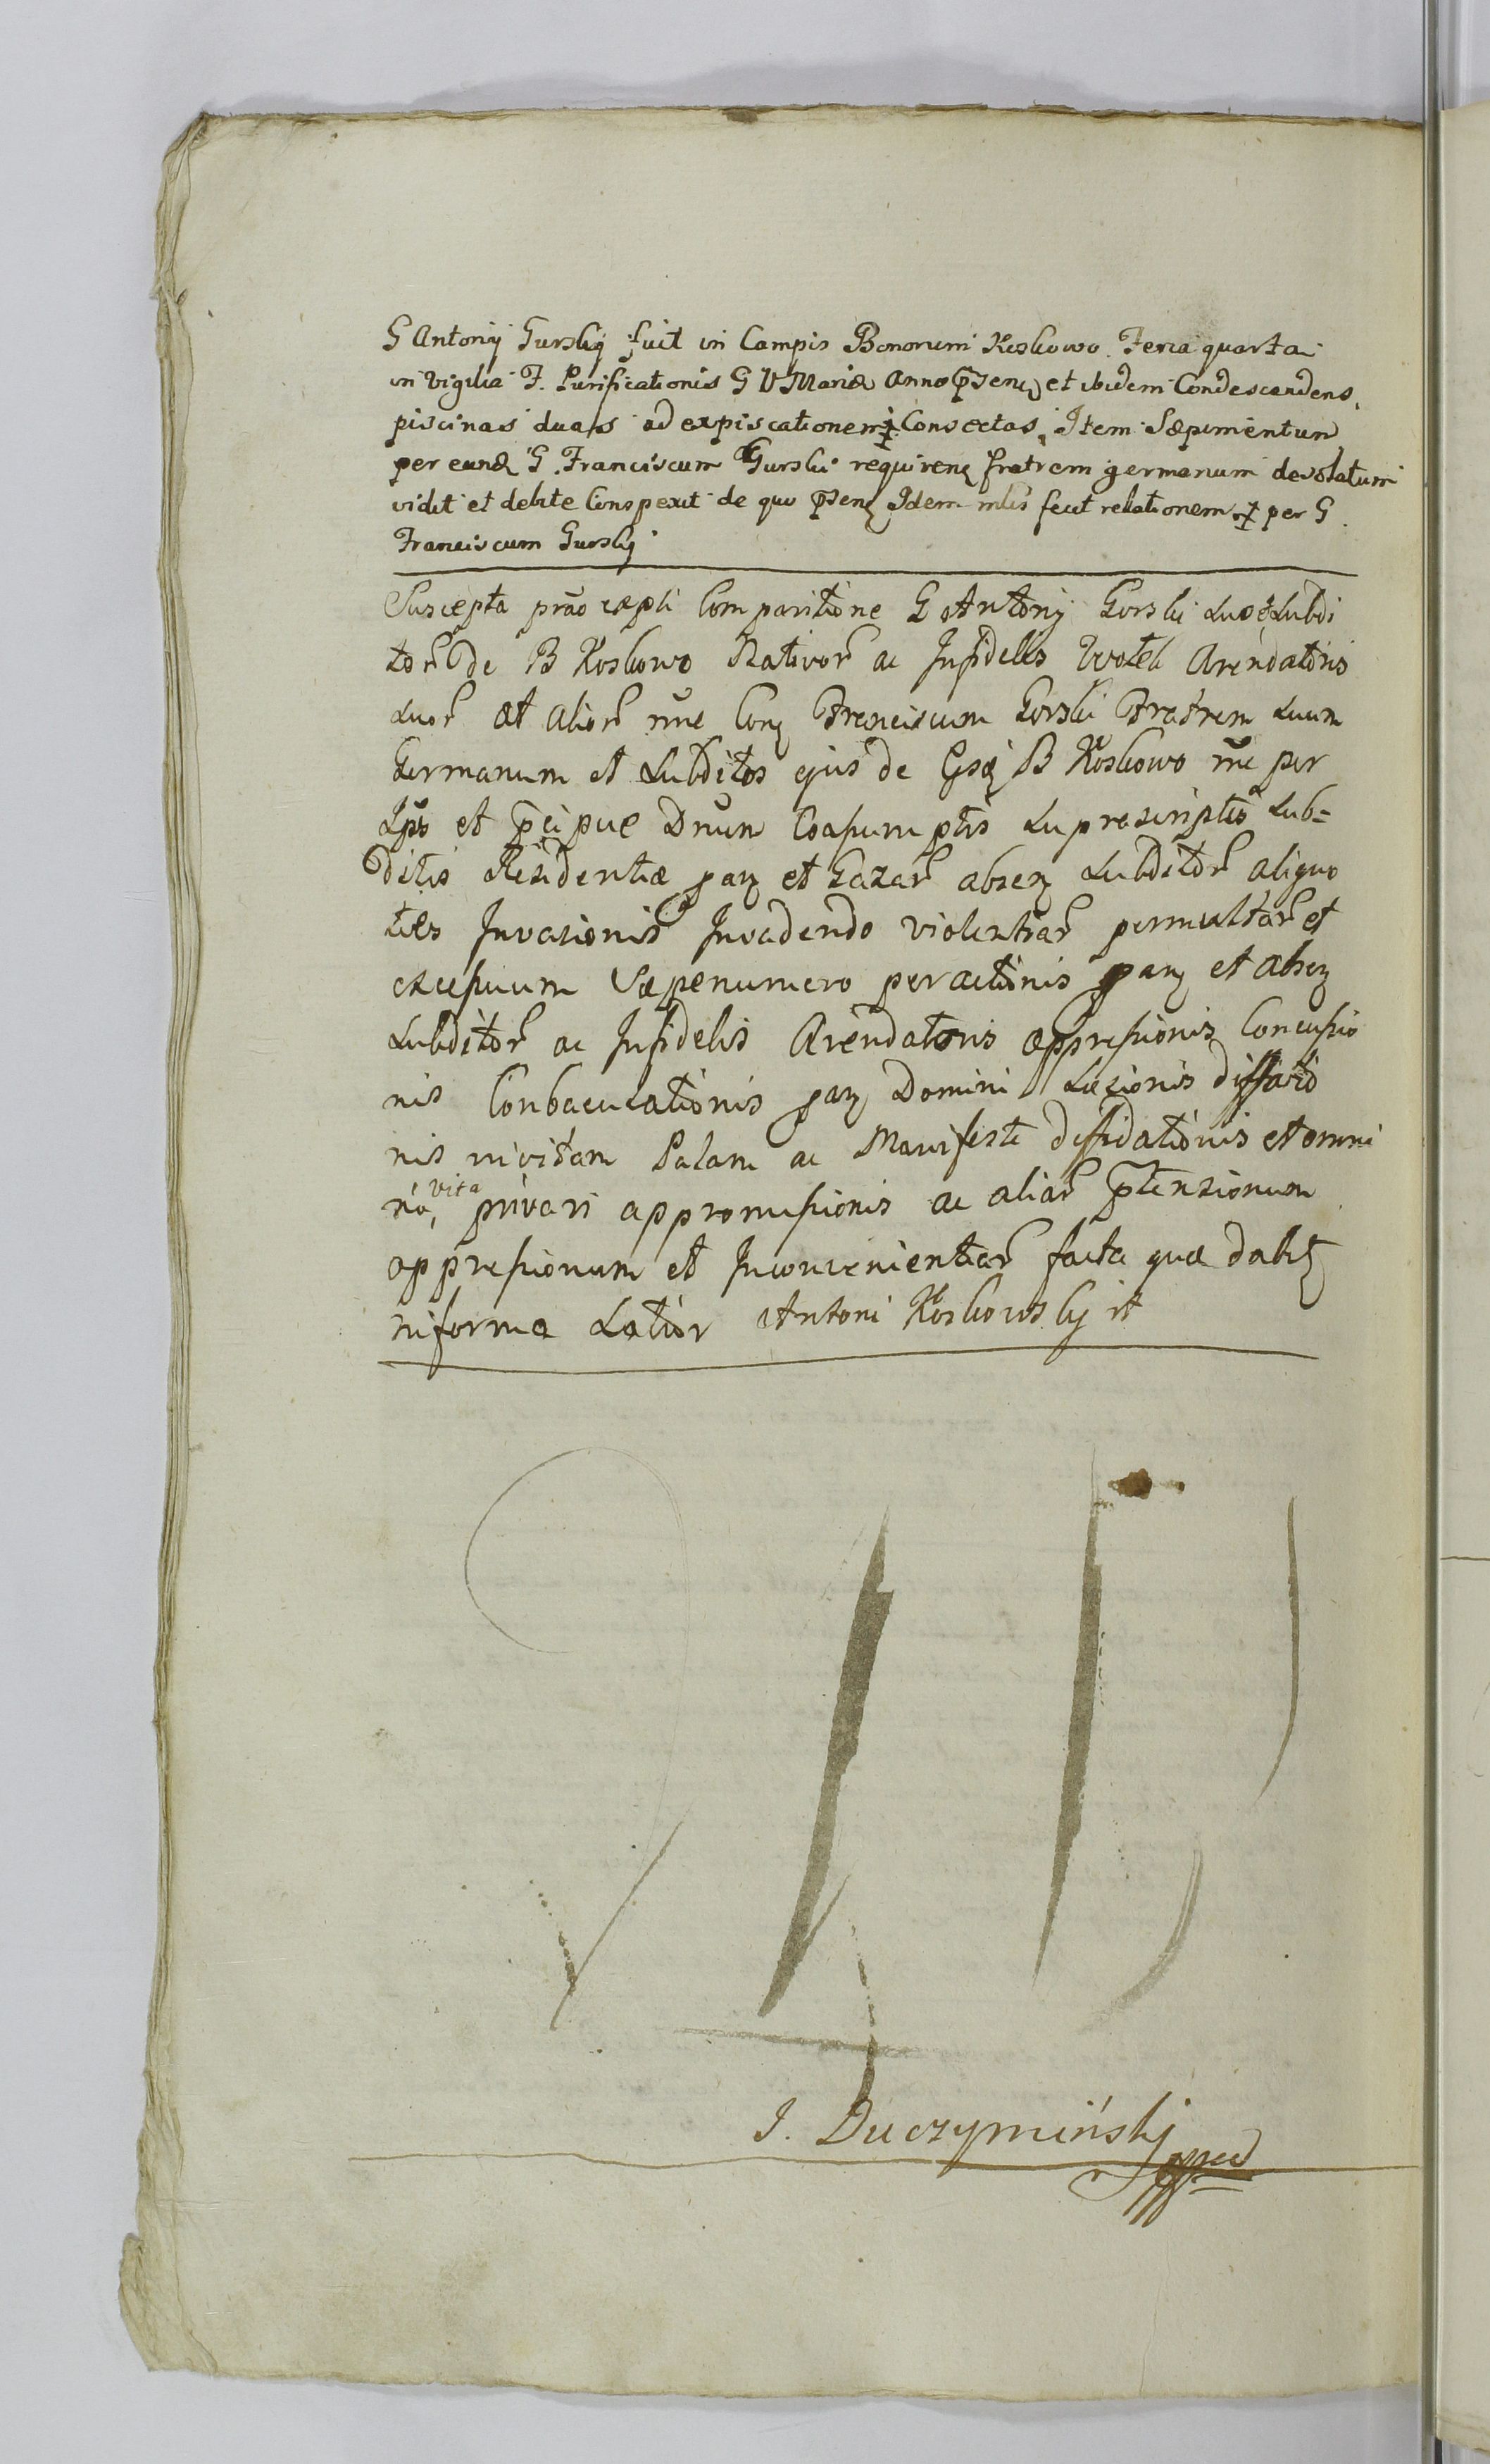 G Antonij Gurskij fuit in Campis Bonorum Koskowo Feria quarta
in Vigilia F. Purificationis G V Mariæ Anno p̄sen et ibidem Condescendens
piscinas duas ad expiscationem Consectas, Item Sæpimentum
per eund G. Franciscum Gurski requiren fratrem germanum desolatum
vidit et debite Conspexit de quo p̄sen Idem mlis fecit relationem per G
Franciscum Gurskij
Suscepta Comparitione G Antonij Gorski Subdi
tor de B Koskowo Nativor ac Infidelis Arendatoris
suor et alior Con Franciscum Gorski Fratrem suum
Germanum et Subditos ejus de B Koskowo per
Ips et p̄cipue suprascriptis Sub=
ditis Residentiæ et absen Subditor aliquo
ties Invasionis Invadendo violentiar permultar et
excessuum Sæpenumero peractionis et absen
Subditor ac Infidelis Arendatoris oppressionis Concussio
nis Conbaculationis Domini Læsionis
nis Palam ac Manifeste diffidationis et omni
no, vita privari appromissionis ac aliar p̄tensionum
oppressionum et Inconvenientiar facta quæ dabit
in forma Latior Antoni Koskowskij
J. Duczymiński